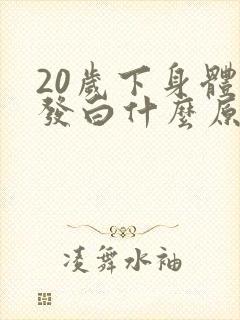 20歲下身體
發白什麼原
凌舞水袖